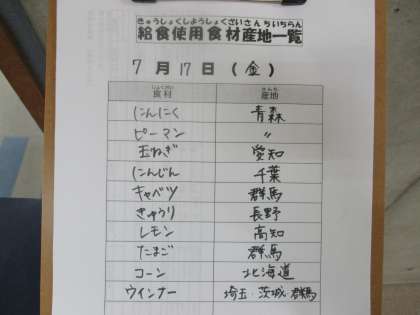 きゅうしょくしようしょくざいさんちいちらん
給食使用食材産地一覧
7月17日(金)
しょくざい さんち
食材 産地
にんにく 青森
ピーマン 〃
玉ねぎ 愛知
にんじん 千葉
キャベツ 群馬
きゅうり 長野
レモン 高知
たまご 群馬
コーン 北海道
ウインナー 埼玉・茨城・群馬